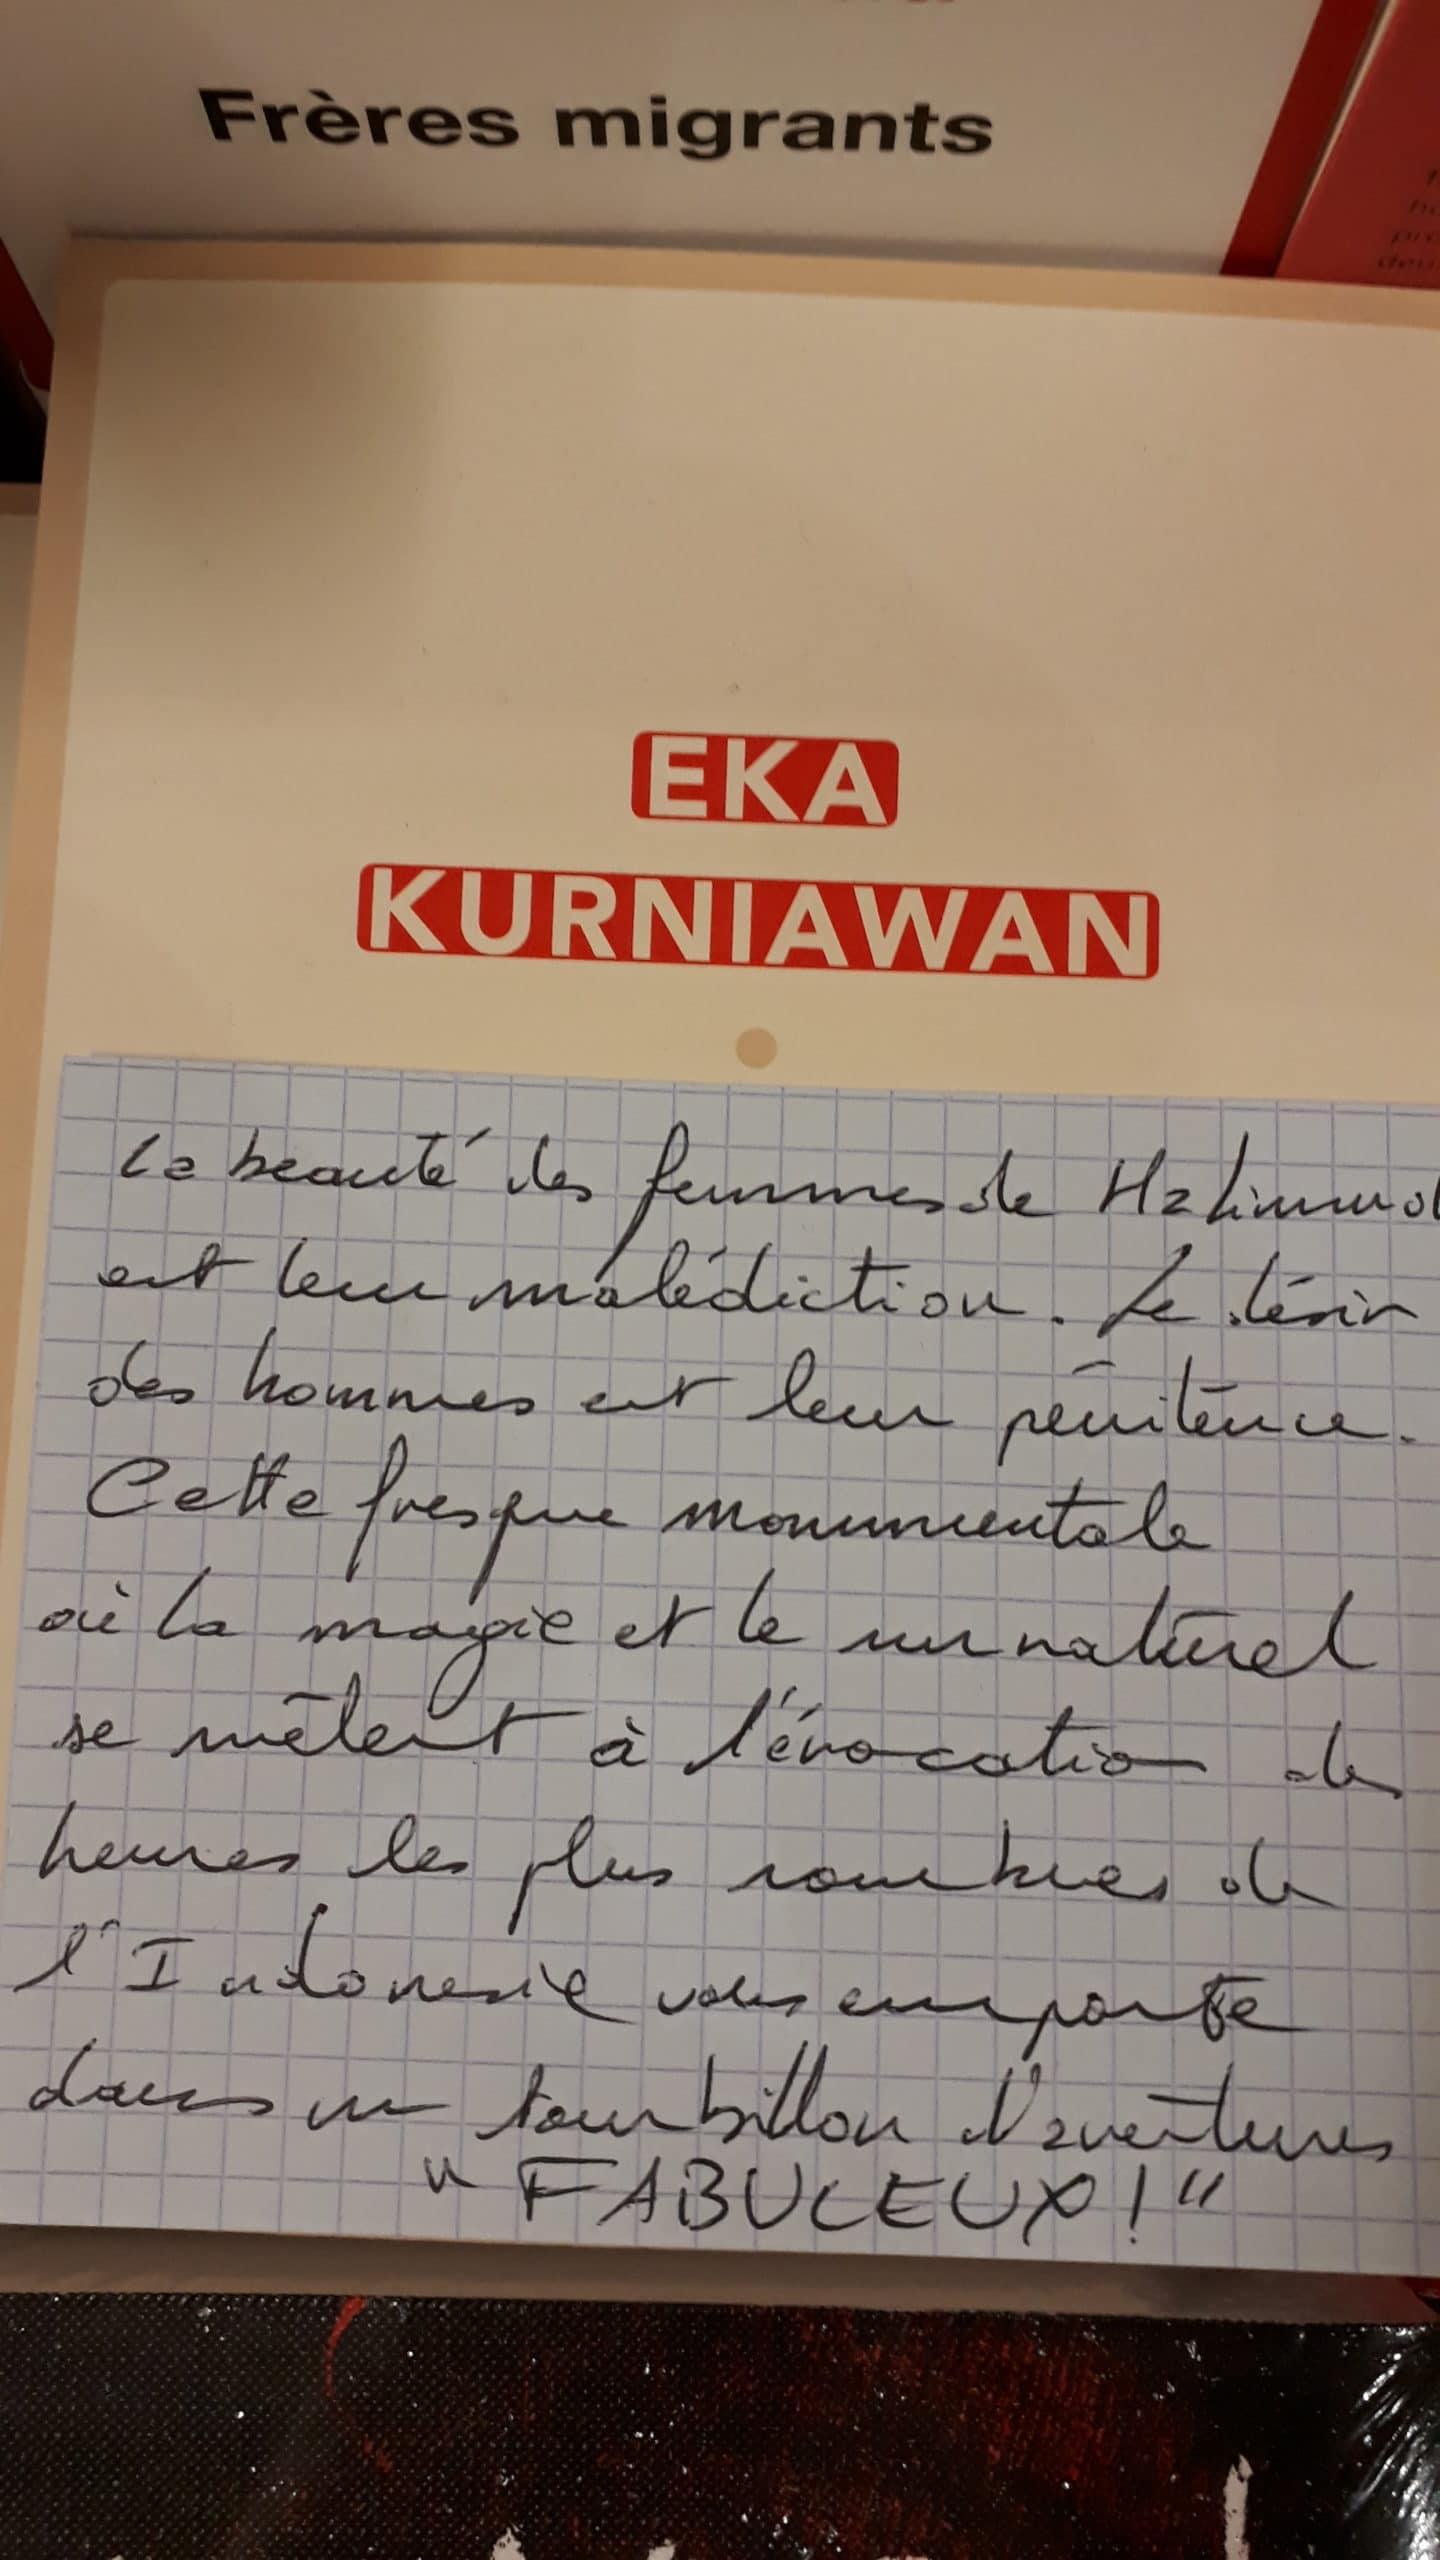 Frères migrants
EKA
KURNIAWAN
La beauté des femmes de Halimund
est leur malédiction. Le désir
des hommes est leur pénitence.
Cette fresque monumentale
où la magie et le surnaturel
se mêlent à l'évocation des
heures les plus sombres de
l'Indonesie vous emporte
dans un tourbillon d'aventures
"FABULEUX!"